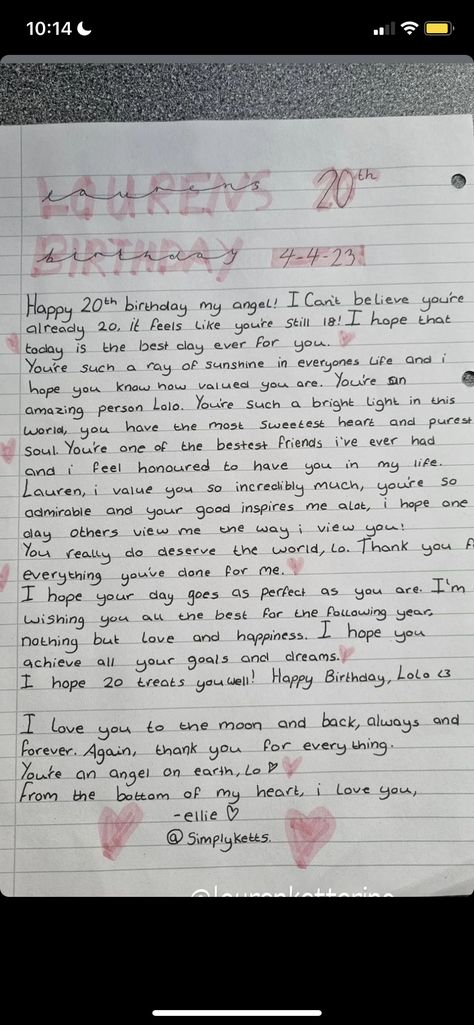 10:14
LAURENS 20th
laurens
BIRTHDAY 4-4-23
birthday
Happy 20th birthday my angel! I Can't believe you're
already 20, it feels like you're still 18! I hope that
today is the best day ever for you.
You're such a ray of sunshine in everyones life and i
hope you know how valued you are. You're an
amazing person Lolo. You're such a bright light in this
world, you have the most sweetest heart and purest
soul. You're one of the bestest friends i've ever had
and i feel honoured to have you in my life.
Lauren, i value you so incredibly much, you're so
admirable and your good inspires me alot, i hope one
day others view me the way i view you!
You really do deserve the world, Lo. Thank you f
everything you've done for me.
I hope your day goes as perfect as you are. I'm
wishing you all the best for the following year,
nothing but love and happiness. I hope you
achieve all your goals and dreams.
I hope 20 treats you well! Happy Birthday, Lolo <3
I love you to the moon and back, always and
forever. Again, thank you for everything.
You're an angel on earth, Lo ♡
From the bottom of my heart, i love you,
-ellie ♡
@Simplyketts.